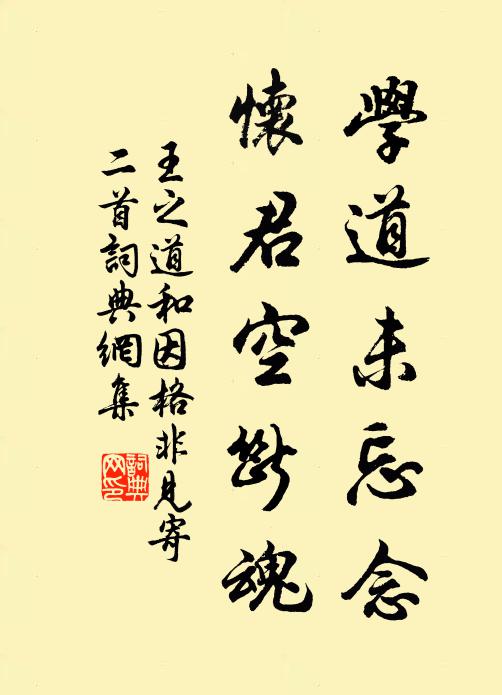 學道未忘念
懷君空斷魂
王之道和因格非見寄
二首詞典網集
詞典
网印